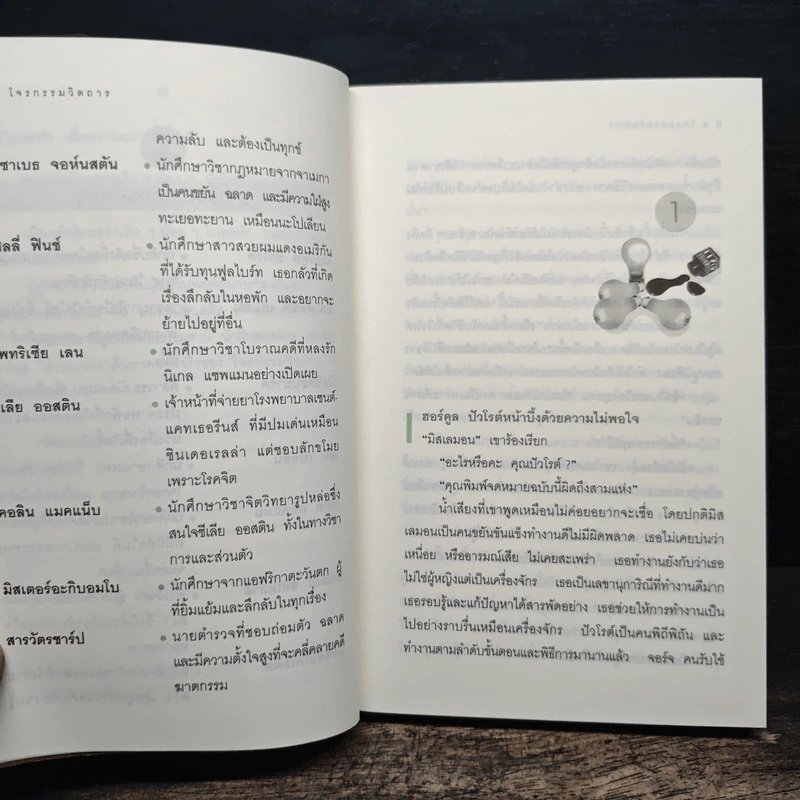 โจรกรรมวิตถาร
ความลับ และต้องเป็นทุกข์
ซาเบธ จอห์นสตัน ● นักศึกษาวิชากฎหมายจากจาเมกา
เป็นคนขยัน ฉลาด และมีความใฝ่สูง
ทะเยอทะยาน เหมือนนะโปเลียน
ลลี่ ฟินช์ ● นักศึกษาสาวสวยผมแดงอเมริกัน
ที่ได้รับทุนฟูลไบร้ท เธอกลัวที่เกิด
เรื่องลึกลับในหอพัก และอยากจะ
ย้ายไปอยู่ที่อื่น
พทริเซีย เลน ● นักศึกษาวิชาโบราณคดีที่หลงรัก
นิเกล แชพแมนอย่างเปิดเผย
เลีย ออสติน ● เจ้าหน้าที่จ่ายยาโรงพยาบาลเซนต์-
แคทเธอรีนส์ ที่มีปมเด่นเหมือน
ซินเดอเรลล่า แต่ชอบลักขโมย
เพราะโรคจิต
คอลิน แมคแน็บ ● นักศึกษาวิชาจิตวิทยารูปหล่อซึ่ง
สนใจซีเลีย ออสติน ทั้งในทางวิชา
การและส่วนตัว
มิสเตอร์อะกิบอมโบ ● นักศึกษาจากแอฟริกาตะวันตก ผู้
ที่ยิ้มแย้มและลึกลับในทุกเรื่อง
สารวัตรชาร์ป ● นายตำรวจที่ชอบถ่อมตัว ฉลาด
และมีความตั้งใจสูงที่จะคลี่คลายคดี
ฆาตกรรม
1
ฮอร์คูล ปัวโรต์หน้าบึ้งด้วยความไม่พอใจ
“มิสเลมอน” เขาร้องเรียก
“อะไรหรือคะ คุณปัวโรต์ ?”
“คุณพิมพ์จดหมายฉบับนี้ผิดถึงสามแห่ง”
น้ำเสียงที่เขาพูดเหมือนไม่ค่อยอยากจะเชื่อ โดยปกติมิส
เลมอนเป็นคนขยันขันแข็งทำงานดีไม่มีผิดพลาด เธอไม่เคยบ่นว่า
เหนื่อย หรืออารมณ์เสีย ไม่เคยสะเพร่า เธอทำงานยังกับว่าเธอ
ไม่ใช่ผู้หญิงแต่เป็นเครื่องจักร เธอเป็นเลขานุการิณีที่ทำงานดีมาก
เธอรอบรู้และแก้ปัญหาได้สารพัดอย่าง เธอช่วยให้การทำงานเป็น
ไปอย่างราบรื่นเหมือนเครื่องจักร ปัวโรต์เป็นคนพิถีพิถัน และ
ทำงานตามลำดับขั้นตอนและพิธีการมานานแล้ว จอร์จ คนรับใช้